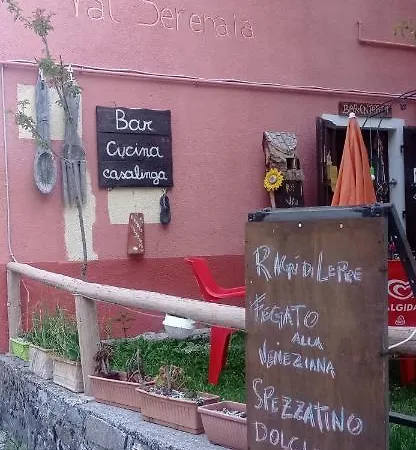 Val Serenaia
Bar
Cucina
casalinga
RAGÙ DI LEPRE
FEGATO
ALLA
VENEZIANA
SPEZZATINO
DOLCI
ALGIDA